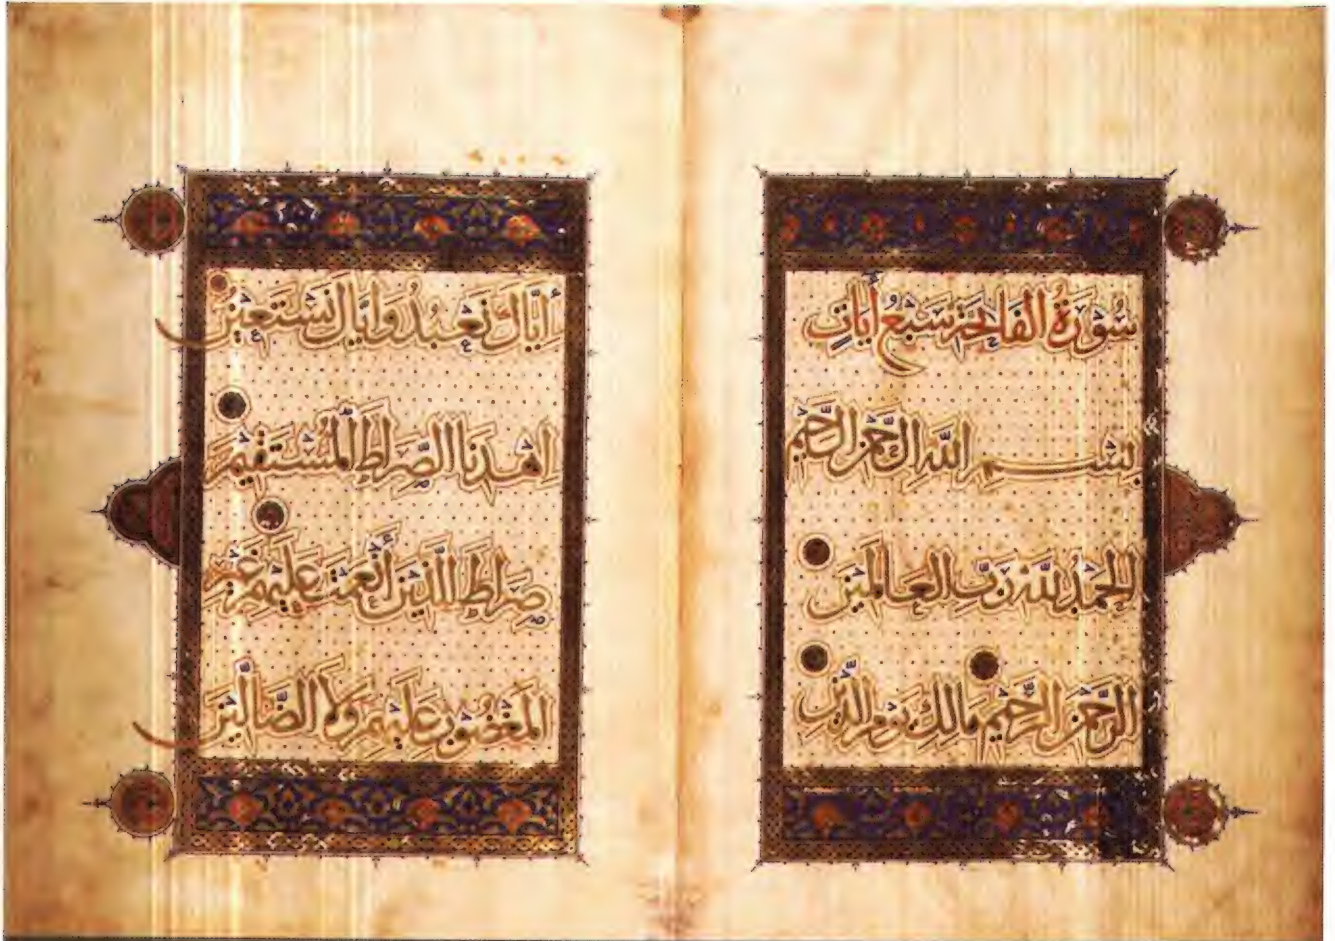 سُورَةُ الفَاتِحَةِ سَبْعُ أَيَاتٍ
بِسْمِ اللَّهِ الرَّحْمَنِ الرَّحِيمِ
الحَمْدُ لِلَّهِ رَبِّ العَالَمِينَ
الرَّحْمَنِ الرَّحِيمِ مَالِكِ يَوْمِ الدِّينِ
إِيَّاكَ نَعْبُدُ وَإِيَّاكَ نَسْتَعِينُ
اهْدِنَا الصِّرَاطَ المُسْتَقِيمَ
صِرَاطَ الَّذِينَ أَنْعَمْتَ عَلَيْهِمْ غَيْرِ
المَغْضُوبِ عَلَيْهِمْ وَلَا الضَّالِّينَ